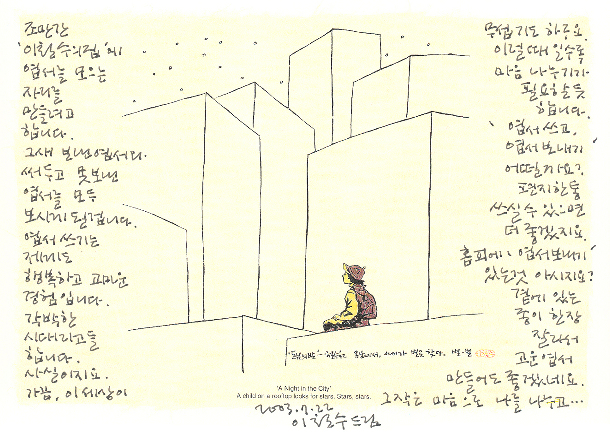 조만간
'이철수의집'에
엽서를 모으는
자리를
만들려고
합니다.
그새 보낸엽서와
써두고 못보낸
엽서를 모두
보시게 될겁니다.
엽서 쓰기는
제게도
행복하고 고마운
경험입니다.
각박한
시대라고들
합니다.
사실이지요.
가끔, 이 세상이
무섭기도 하구요.
이럴 때 일수록
마음 나누기가
필요할듯
합니다.
'엽서 쓰고,
엽서 보내기'
어떨까요?
편지 한통
쓰실 수 있으면
더 좋겠지요.
홈피에 '엽서보내기'
있는것 아시지요?
곁에 있는
종이 한장
잘라서
고운엽서
만들어도 좋겠네요.
그 작은 마음으로 나를 나누고…
'A Night in the City'
A child on a rooftop looks for stars. Stars, stars.
2003.7.22
이철수드림